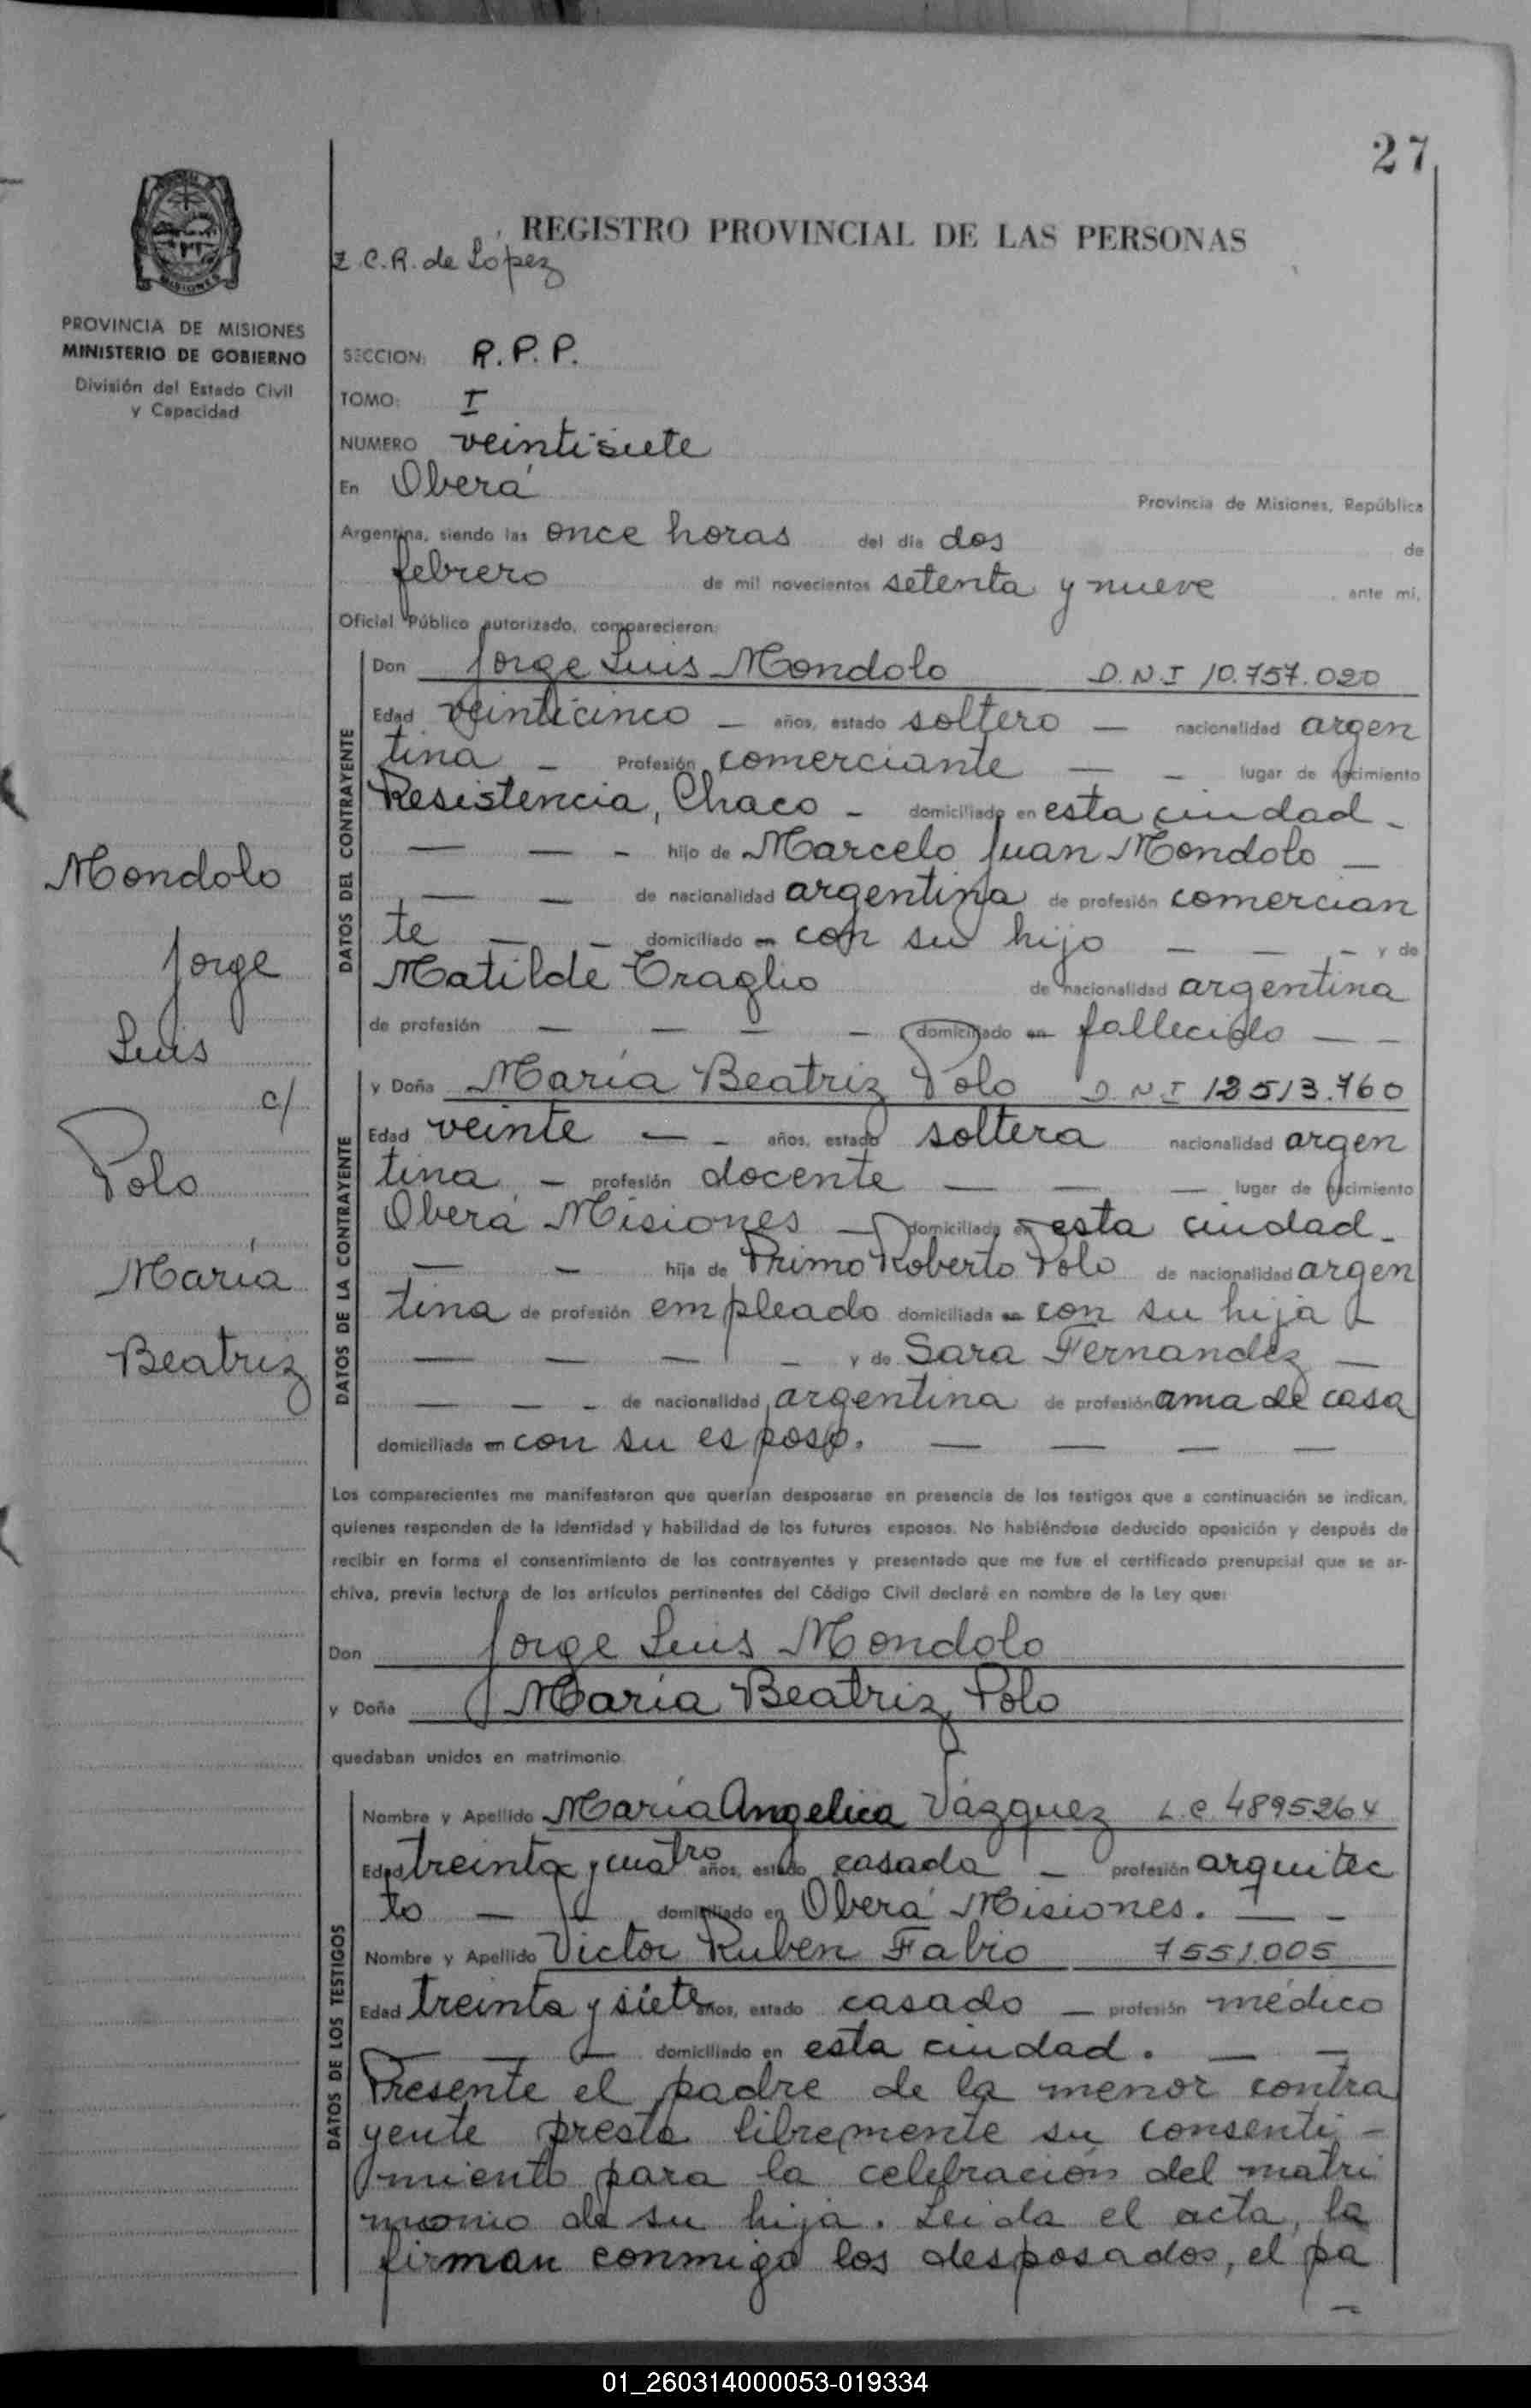 27
REGISTRO PROVINCIAL DE LAS PERSONAS
Z.C.R. de López
MISIONES
PROVINCIA DE MISIONES
MINISTERIO DE GOBIERNO
División del Estado Civil
y Capacidad
SECCION: R.P.P.
TOMO: I
NUMERO veintisiete
En Oberá Provincia de Misiones, República
Argentina, siendo las once horas del día dos de
febrero de mil novecientos setenta y nueve, ante mí,
Oficial Público autorizado, comparecieron:
DATOS DEL CONTRAYENTE
Don Jorge Luis Mondolo D.N.I 10.757.020
Edad veinticinco — años, estado soltero — nacionalidad argen
tina — Profesión comerciante — — lugar de nacimiento
Resistencia, Chaco — domiciliado en esta ciudad —
— — — hijo de Marcelo Juan Mondolo —
— — de nacionalidad argentina de profesión comercian
te — — domiciliado en con su hijo — — — y de
Matilde Craglio de nacionalidad argentina
de profesión — — — — domiciliado en fallecido — —
DATOS DE LA CONTRAYENTE
y Doña María Beatriz Polo D.N.I 12513.760
Edad veinte — — años, estado soltera nacionalidad argen
tina, — profesión docente — — — lugar de nacimiento
Oberá Misiones — domiciliada en esta ciudad —
— — hija de Primo Roberto Polo de nacionalidad argen
tina de profesión empleado domiciliada en con su hija —
— — — — y de Sara Fernandez —
— — — de nacionalidad argentina de profesión ama de casa
domiciliada en con su esposo. — — — —
Los comparecientes me manifestaron que querían desposarse en presencia de los testigos que a continuación se indican,
quienes responden de la identidad y habilidad de los futuros esposos. No habiéndose deducido oposición y después de
recibir en forma el consentimiento de los contrayentes y presentado que me fue el certificado prenupcial que se ar-
chiva, previa lectura de los artículos pertinentes del Código Civil declaré en nombre de la Ley que:
Don Jorge Luis Mondolo
y Doña María Beatriz Polo
quedaban unidos en matrimonio
DATOS DE LOS TESTIGOS
Nombre y Apellido María Angelica Vázquez L.C. 4895264
Edad treinta y cuatro años, estado casada — profesión arquitec
to — — domiciliado en Oberá Misiones. — —
Nombre y Apellido Victor Ruben Fabio 7551.005
Edad treinta y siete años, estado casado — profesión médico
— — — domiciliado en esta ciudad. — —
Presente el padre de la menor contra
yente presta libremente su consenti —
miento para la celebración del matri
monio de su hija. Leida el acta, la
firman conmigo los desposados, el pa
—
Mondolo
Jorge
Luis
c/
Polo
María
Beatriz
01_260314000053-019334